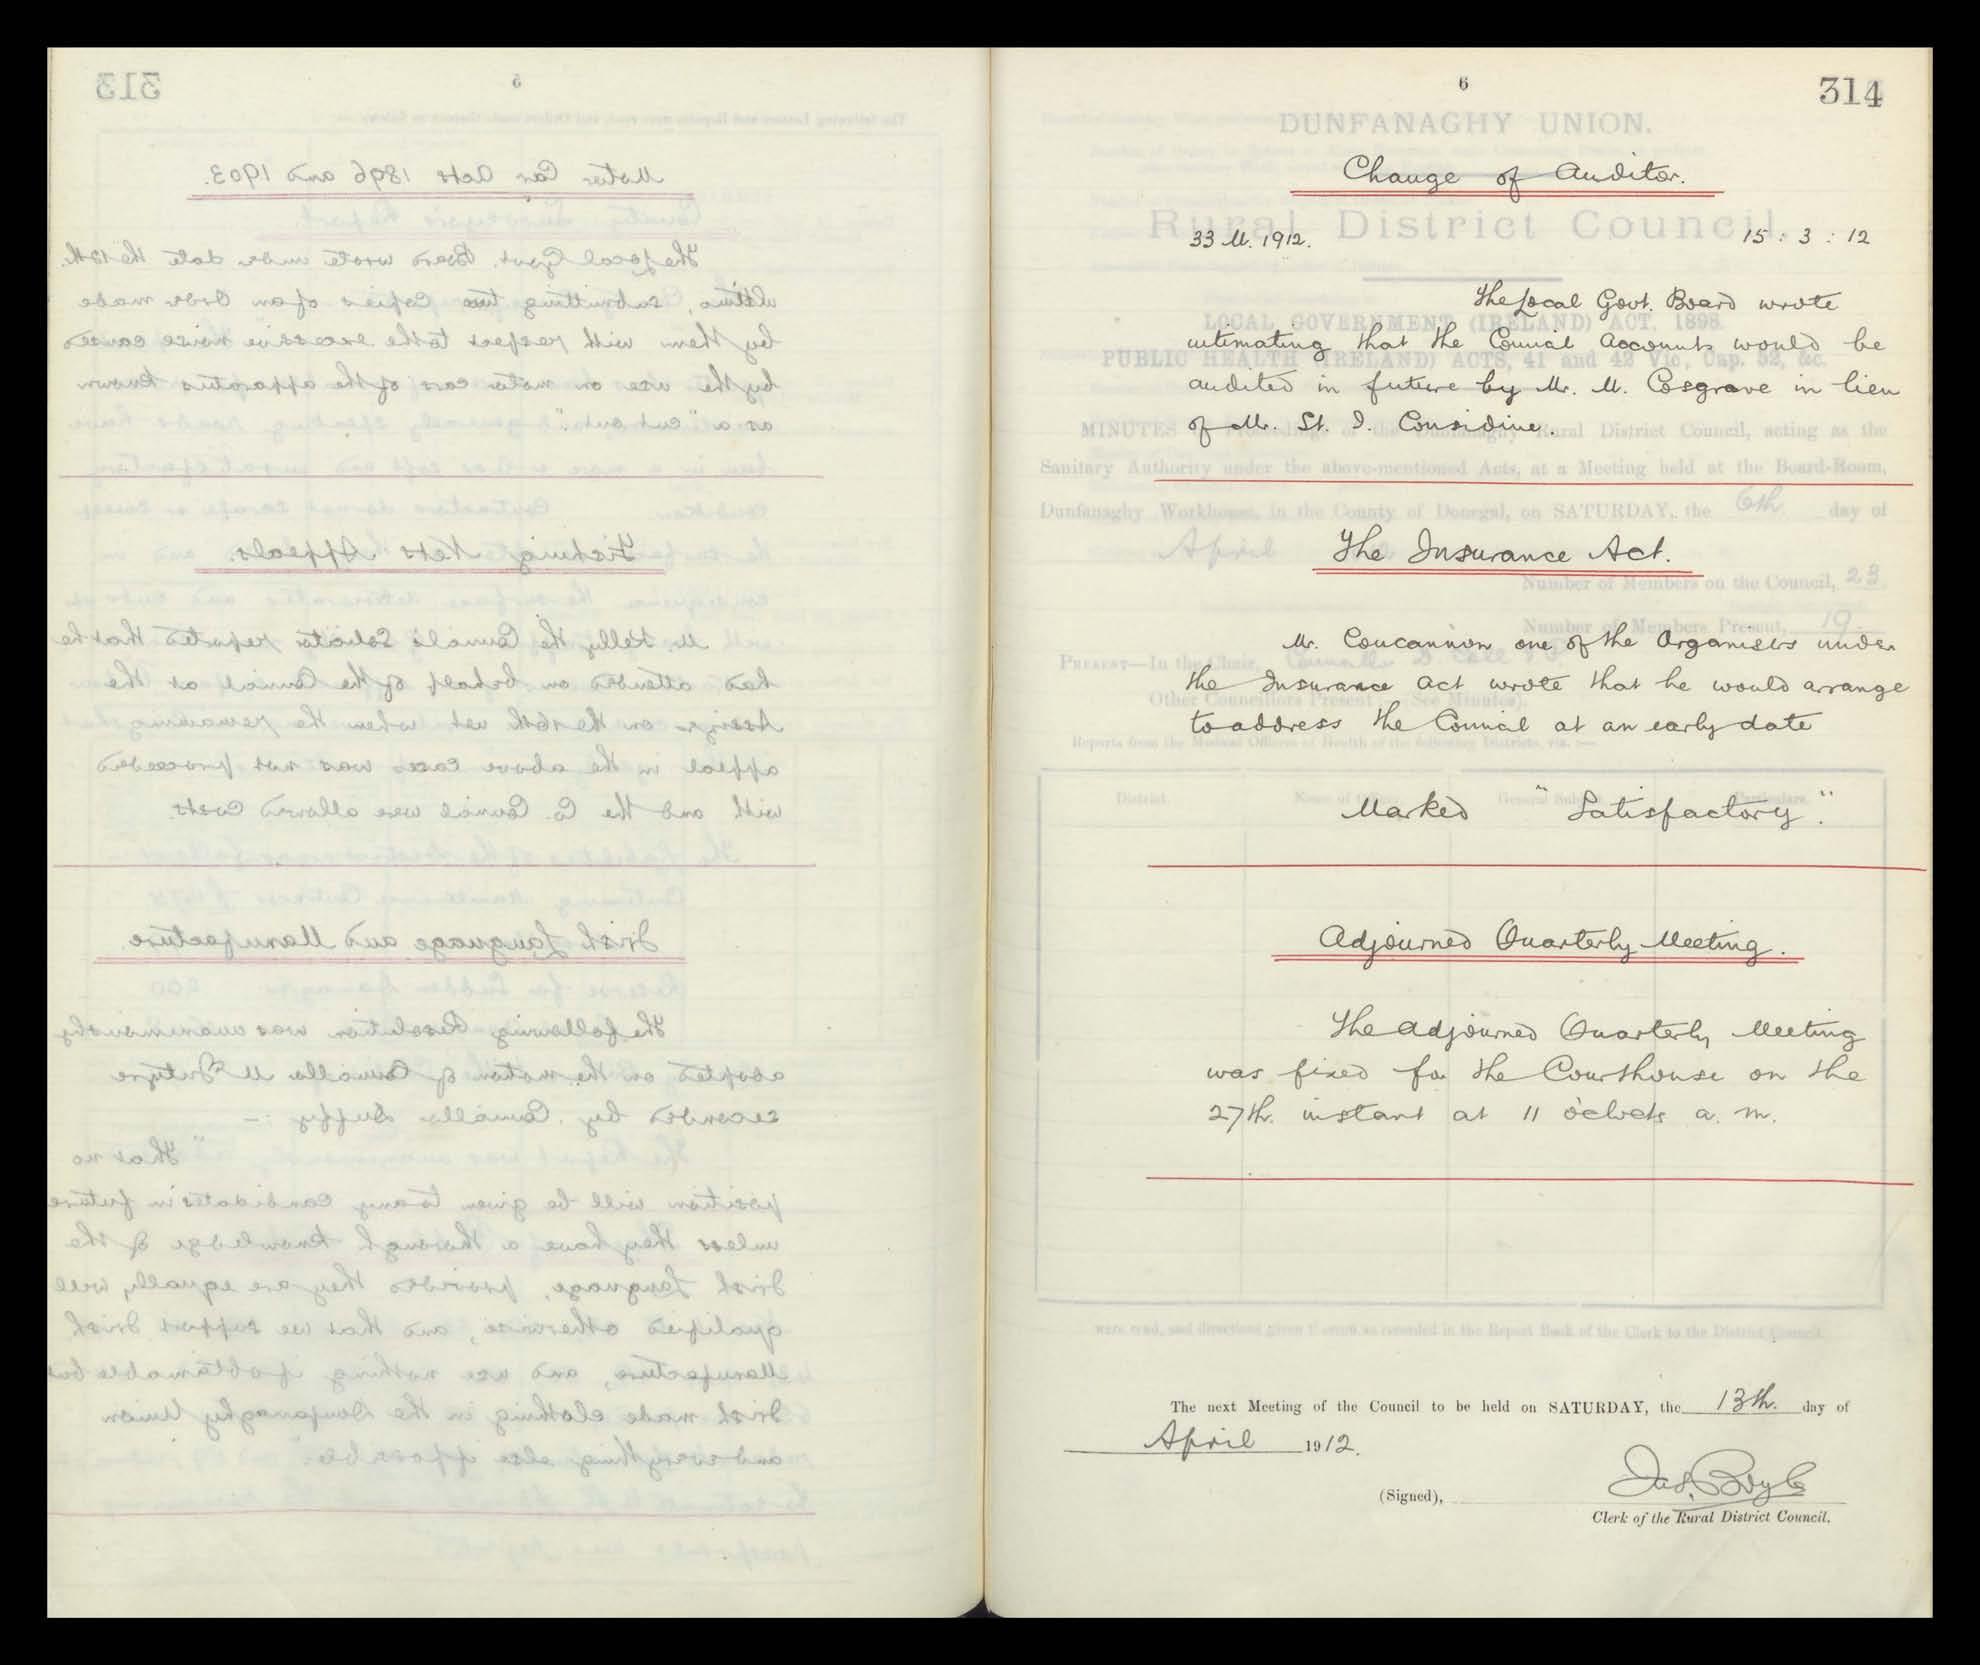 313
5
Motor Car Acts 1896 and 1903.
The Local Govt. Board wrote under date the 12th.
ultimo, submitting two copies of an Order made
by them with respect to the excessive noise caused
by the use on motor cars of the apparatus known
as a "cut out".
Fishing Nets Appeals.
Mr. Kelly the Council's Solicitor reported that he
had attended on behalf of the Council at the
Assizes on the 16th ult when the remaining
appeal in the above cases was not proceeded
with and the Co. Council were allowed costs.
Irish Language and Manufacture.
The following Resolution was unanimously
adopted on the motion of Councillor McIntyre
seconded by Councillor Duffy :—
"That no
position will be given to any candidates in future
unless they have a thorough knowledge of the
Irish Language, provided they are equally well
qualified otherwise, and that we support Irish
Manufacture, and use nothing if obtainable but
Irish made clothing in the Dunfanaghy Union
and everything else if possible."
6
314
DUNFANAGHY UNION.
Change of Auditor.
Rural District Council
33 M. 1912. 15 : 3 : 12
The Local Govt. Board wrote
LOCAL GOVERNMENT (IRELAND) ACT, 1898.
intimating that the Council Accounts would be
PUBLIC HEALTH (IRELAND) ACTS, 41 and 42 Vic., Cap. 52, &c.
audited in future by Mr. M. Cosgrave in lieu
of Mr. St. I. Considine.
MINUTES of Proceedings of the Dunfanaghy Rural District Council, acting as the
Sanitary Authority under the above-mentioned Acts, at a Meeting held at the Board-Room,
Dunfanaghy Workhouse, in the County of Donegal, on SATURDAY, the 6th day of
April
The Insurance Act.
Number of Members on the Council, 23
Number of Members Present, 19
Mr. Concannon one of the Organisers under
PRESENT—In the Chair,
the Insurance Act wrote that he would arrange
Other Councillors Present (See Minutes).
to address the Council at an early date
Reports from the Medical Officers of Health of the following Districts, viz. :—
District. Name of Officer. General Subject. Particulars.
Marked "Satisfactory".
Adjourned Quarterly Meeting.
The Adjourned Quarterly Meeting
was fixed for the Courthouse on the
27th. instant at 11 o'clock a. m.
were read, and directions given thereon as recorded in the Report Book of the Clerk to the District Council.
The next Meeting of the Council to be held on SATURDAY, the 13th. day of
April 1912.
(Signed), Jas. Boyle
Clerk of the Rural District Council.